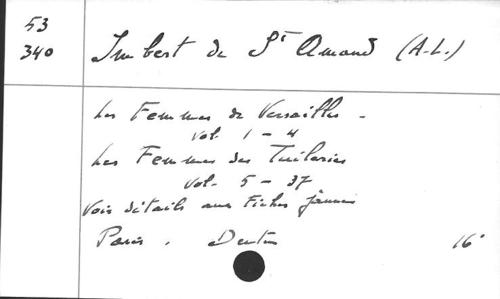 53
340
Imbert de St Amand (A.-L.)
Les Femmes de Versailles -
vol. 1 - 4
Les Femmes des Tuileries
vol. 5 - 37
Voir détails aux Fiches jaunes
Paris. Dentu 16°